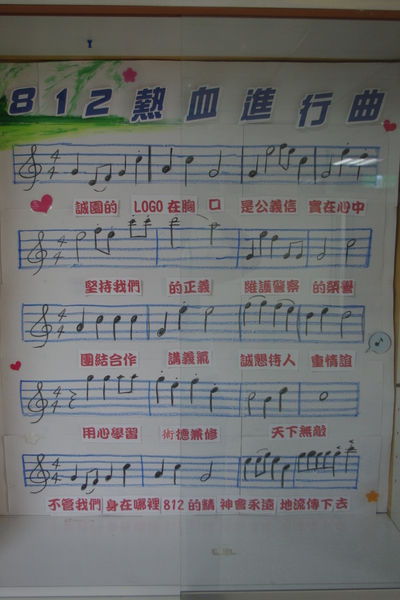 812熱血進行曲
誠園的 LOGO在胸 口 是公義信 實在心中
堅持我們 的正義 維護警察 的榮譽
團結合作 講義氣 誠懇待人 重情誼
用心學習 術德兼修 天下無敵
不管我們 身在哪裡 812的精 神會永遠 地流傳下去